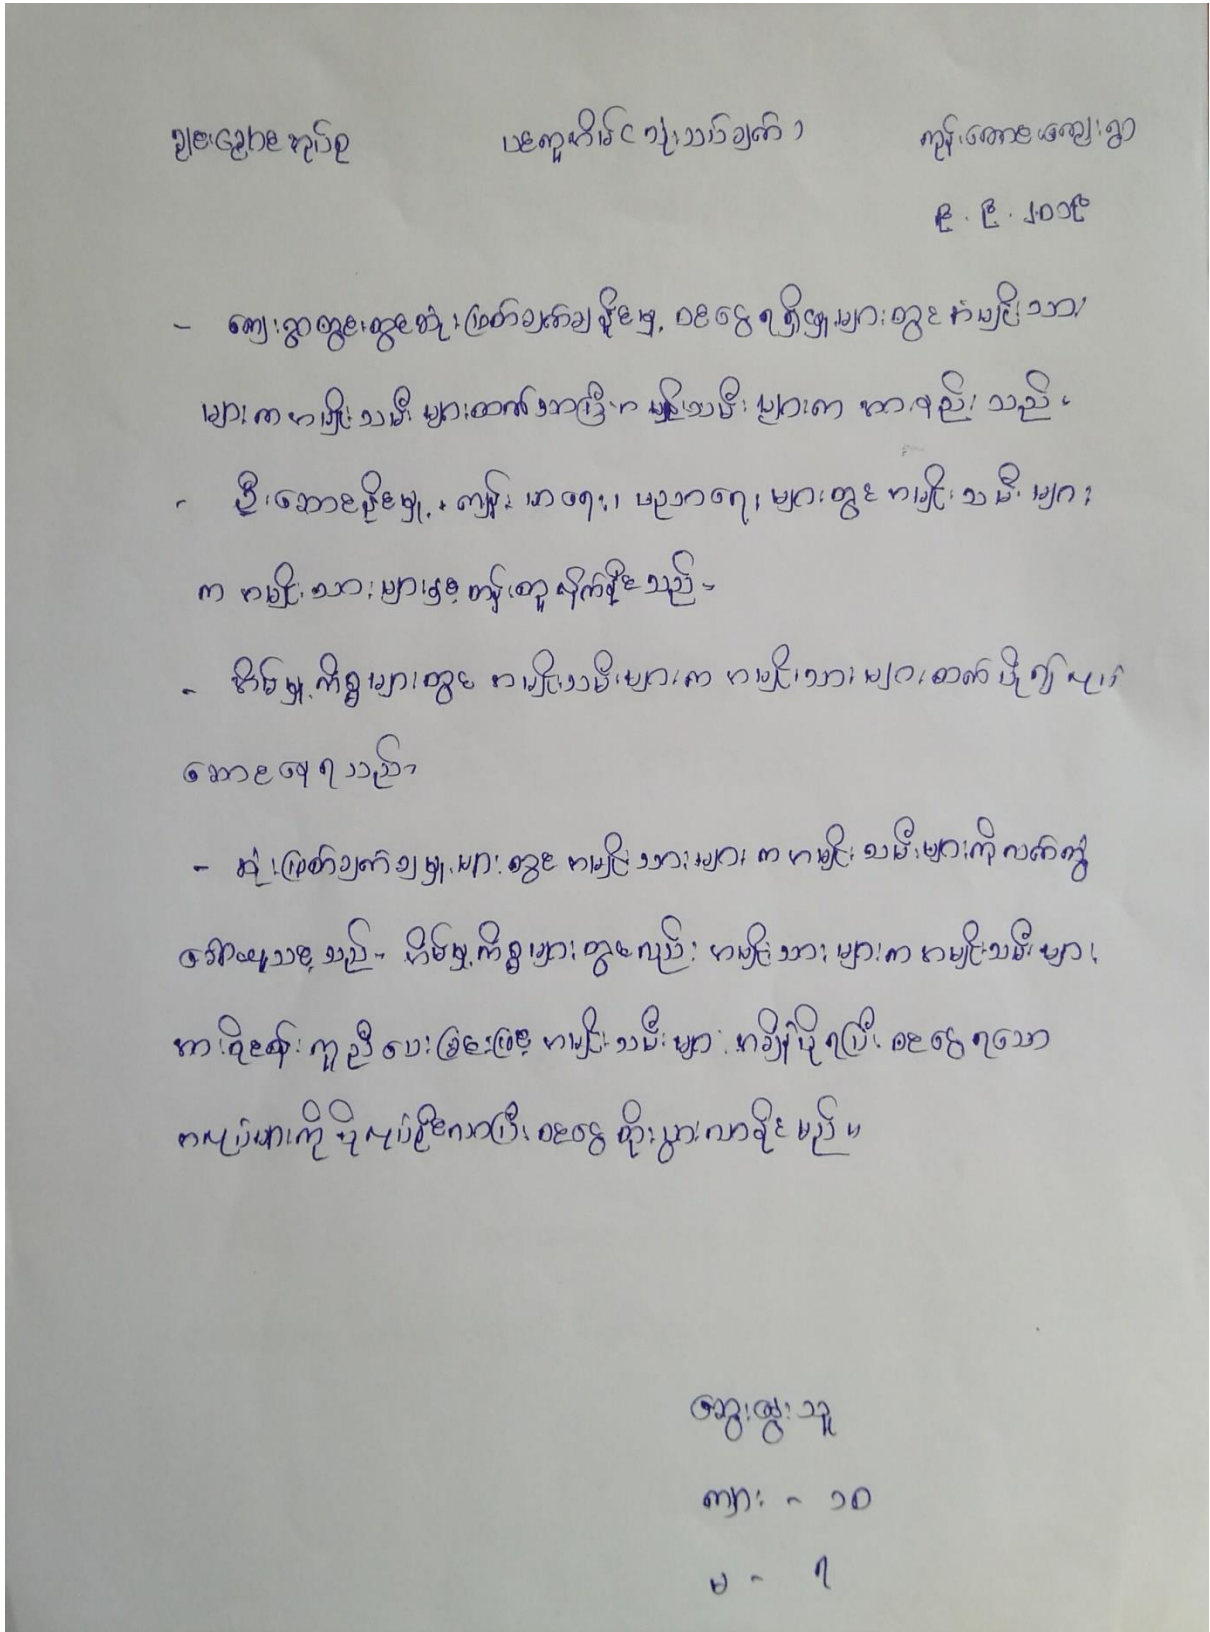 ချင်းချောင်းအုပ်စု ပင်ကူအိမ် ( သုံးသပ်ချက် ) ကုန်းကောင်းကျေးရွာ
၉ . ၉ . ၂၀၁၉
- ကျေးရွာတွင်းတွင်ဆုံးဖြတ်ချက်ချနိုင်မှု့ ဝင်ငွေရရှိမှုများတွင် အမျိုးသား
များက အမျိုးသမီးများထက်သာပြီး အမျိုးသမီးများက အားနည်းသည်။
- ဦးဆောင်နိုင်မှု့ ၊ ကျန်းမာရေး ၊ ပညာရေး များတွင် အမျိုးသမီးများ
က အမျိုးသားများနှင့် တန်းတူလိုက်နိုင်သည်။
- အိမ်မှု့ကိစ္စများတွင် အမျိုးသမီးများက အမျိုးသားများထက် ပို၍ လုပ်
ဆောင်နေရသည်။
- ဆုံးဖြတ်ချက်ချမှု့များတွင် အမျိုးသားများက အမျိုးသမီးများကိုလက်တွဲ
ခေါ်ယူသင့်သည်။ အိမ်မှု့ကိစ္စများတွင်လည်း အမျိုးသားများက အမျိုးသမီးများ
အားဝိုင်းဝန်းကူညီပေးခြင်းဖြင့် အမျိုးသမီးများ အချိန်ပိုရပြီး ဝင်ငွေရသော
အလုပ်များကို ပိုလုပ်နိုင်လာပြီး ဝင်ငွေတိုးပွားလာနိုင်မည်။
ထွေးထွေးသူ
ကျား - ၁၀
မ - ၇